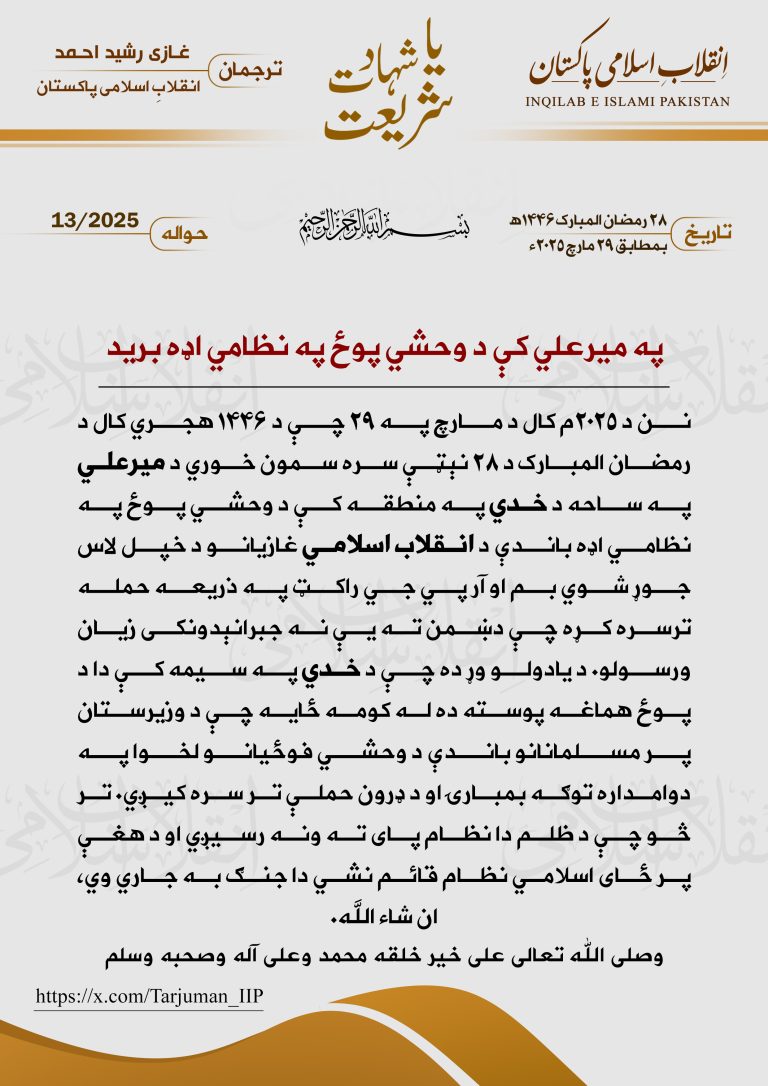 انقلابِ اسلامی پاکستان
INQILAB E ISLAMI PAKISTAN
یا شہادت
شریعت
ترجمان
غازی رشید احمد
انقلابِ اسلامی پاکستان
تاریخ
۲۸ رمضان المبارک ۱۴۴۶ھ
بمطابق ۲۹ مارچ ۲۰۲۵ء
بسم الله الرحمن الرحيم
حوالہ
13/2025
په میرعلي کې د وحشي پوځ په نظامي اډه برید
نن د ۲۰۲۵م کال د مارچ په ۲۹ چې د ۱۴۴۶ هجري کال د
رمضان المبارک د ۲۸ نېټې سره سمون خوري د میرعلي
په ساحه د خدي په منطقه کې د وحشي پوځ په
نظامي اډه باندې د انقلاب اسلامي غازیانو د خپل لاس
جوړ شوي بم او آر پي جي راکټ په ذریعه حمله
ترسره کړه چې دښمن ته یې نه جبرانېدونکی زیان
ورسولو. د یادولو وړ ده چې د خدي په سیمه کې دا د
پوځ هماغه پوسته ده له کومه ځایه چې د وزیرستان
پر مسلمانانو باندې د وحشي فوځیانو لخوا په
دوامداره توګه بمبارۍ او د ډرون حملې تر سره کیږي. تر
څو چې د ظلم دا نظام پای ته ونه رسیږي او د هغې
پر ځای اسلامي نظام قائم نشي دا جنګ به جاري وي،
ان شاء اللَّه.
وصلى الله تعالى على خير خلقه محمد وعلى آله وصحبه وسلم
https://x.com/Tarjuman_IIP